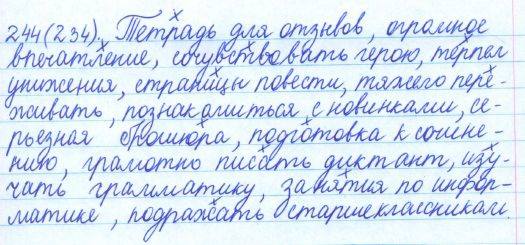 244(234). Тетрадь для отзывов, огромное
впечатление, сочувствовать герою, терпел
унижения, страницы повести, тяжело пере-
живать, познакомиться с новинками, се-
рьезная брошюра, подготовка к сочине-
нию, грамотно писать диктант, изу-
чать грамматику, занятия по инфор-
матике, подражать старшеклассникам.